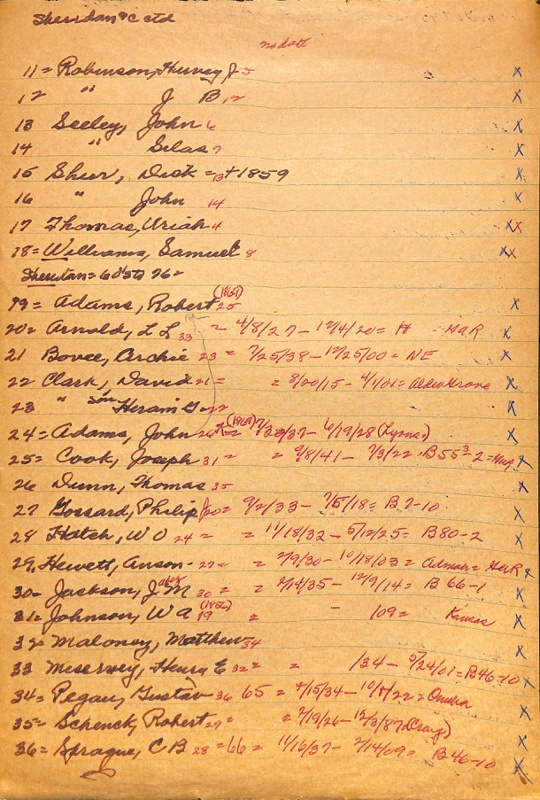 Sheridan & c ctd
no date
11 = Robinson, Harvey J 5 x
12 " J B 12 x
13 Seeley, John 6 x
14 " Silas 7 x
15 Sheer, Dick = 13 + 1859 x
16 " John 14 x
17 Thomas, Uriah 4 xx
18 = Williams, Samuel 8 xx
Sheridan = 60's to 76 =
19 = Adams, Robert (1869) 25 x
20 = Arnold, L L 33 = 4/8/27 - 12/4/20 = H HaR x
21 Bovee, Archie 23 = 7/25/38 - 12/25/00 = NE x
22 Clark, David 21 = = 8/00/15 - 4/1/01 = Alder Grove x
23 " son Heram G 22 x
24 = Adams, John 26 (1869) 6/19/28 (Lyons) x
25 = Cook, Joseph 31 = = 9/8/41 - 7/3/22 - B55 x
26 Dunn, Thomas 35 x
27 Gossard, Philip = 9/2/33 - 7/5/18 = B 7-10 x
28 Hatch, W O 24 = = 11/18/32 - 5/12/25 = B80-2 x
29. Hewett, Anson - 27 = = 2/9/30 - 10/18/03 = HaR x
30 = Jackson, J M 30 = = 2/14/35 - 12/9/14 = B 66-1 x
31 = Johnson, W A (1856) 19 = - 109 = Kansas x
32 = Maloney, Matthew 34 x
33 Meservey, Henry E 32 = = 134 - 9/24/01 = B46-10 x
34 = Pegau, Gustav 36 65 = 7/15/34 - 10/11/22 = Omaha x
35 = Schenck, Robert 29 = = 2/19/26 - 12/3/87 (Craig) x
36 = Sprague, C B 28 = 66 = 11/16/37 - 2/14/09 = B46-10 x